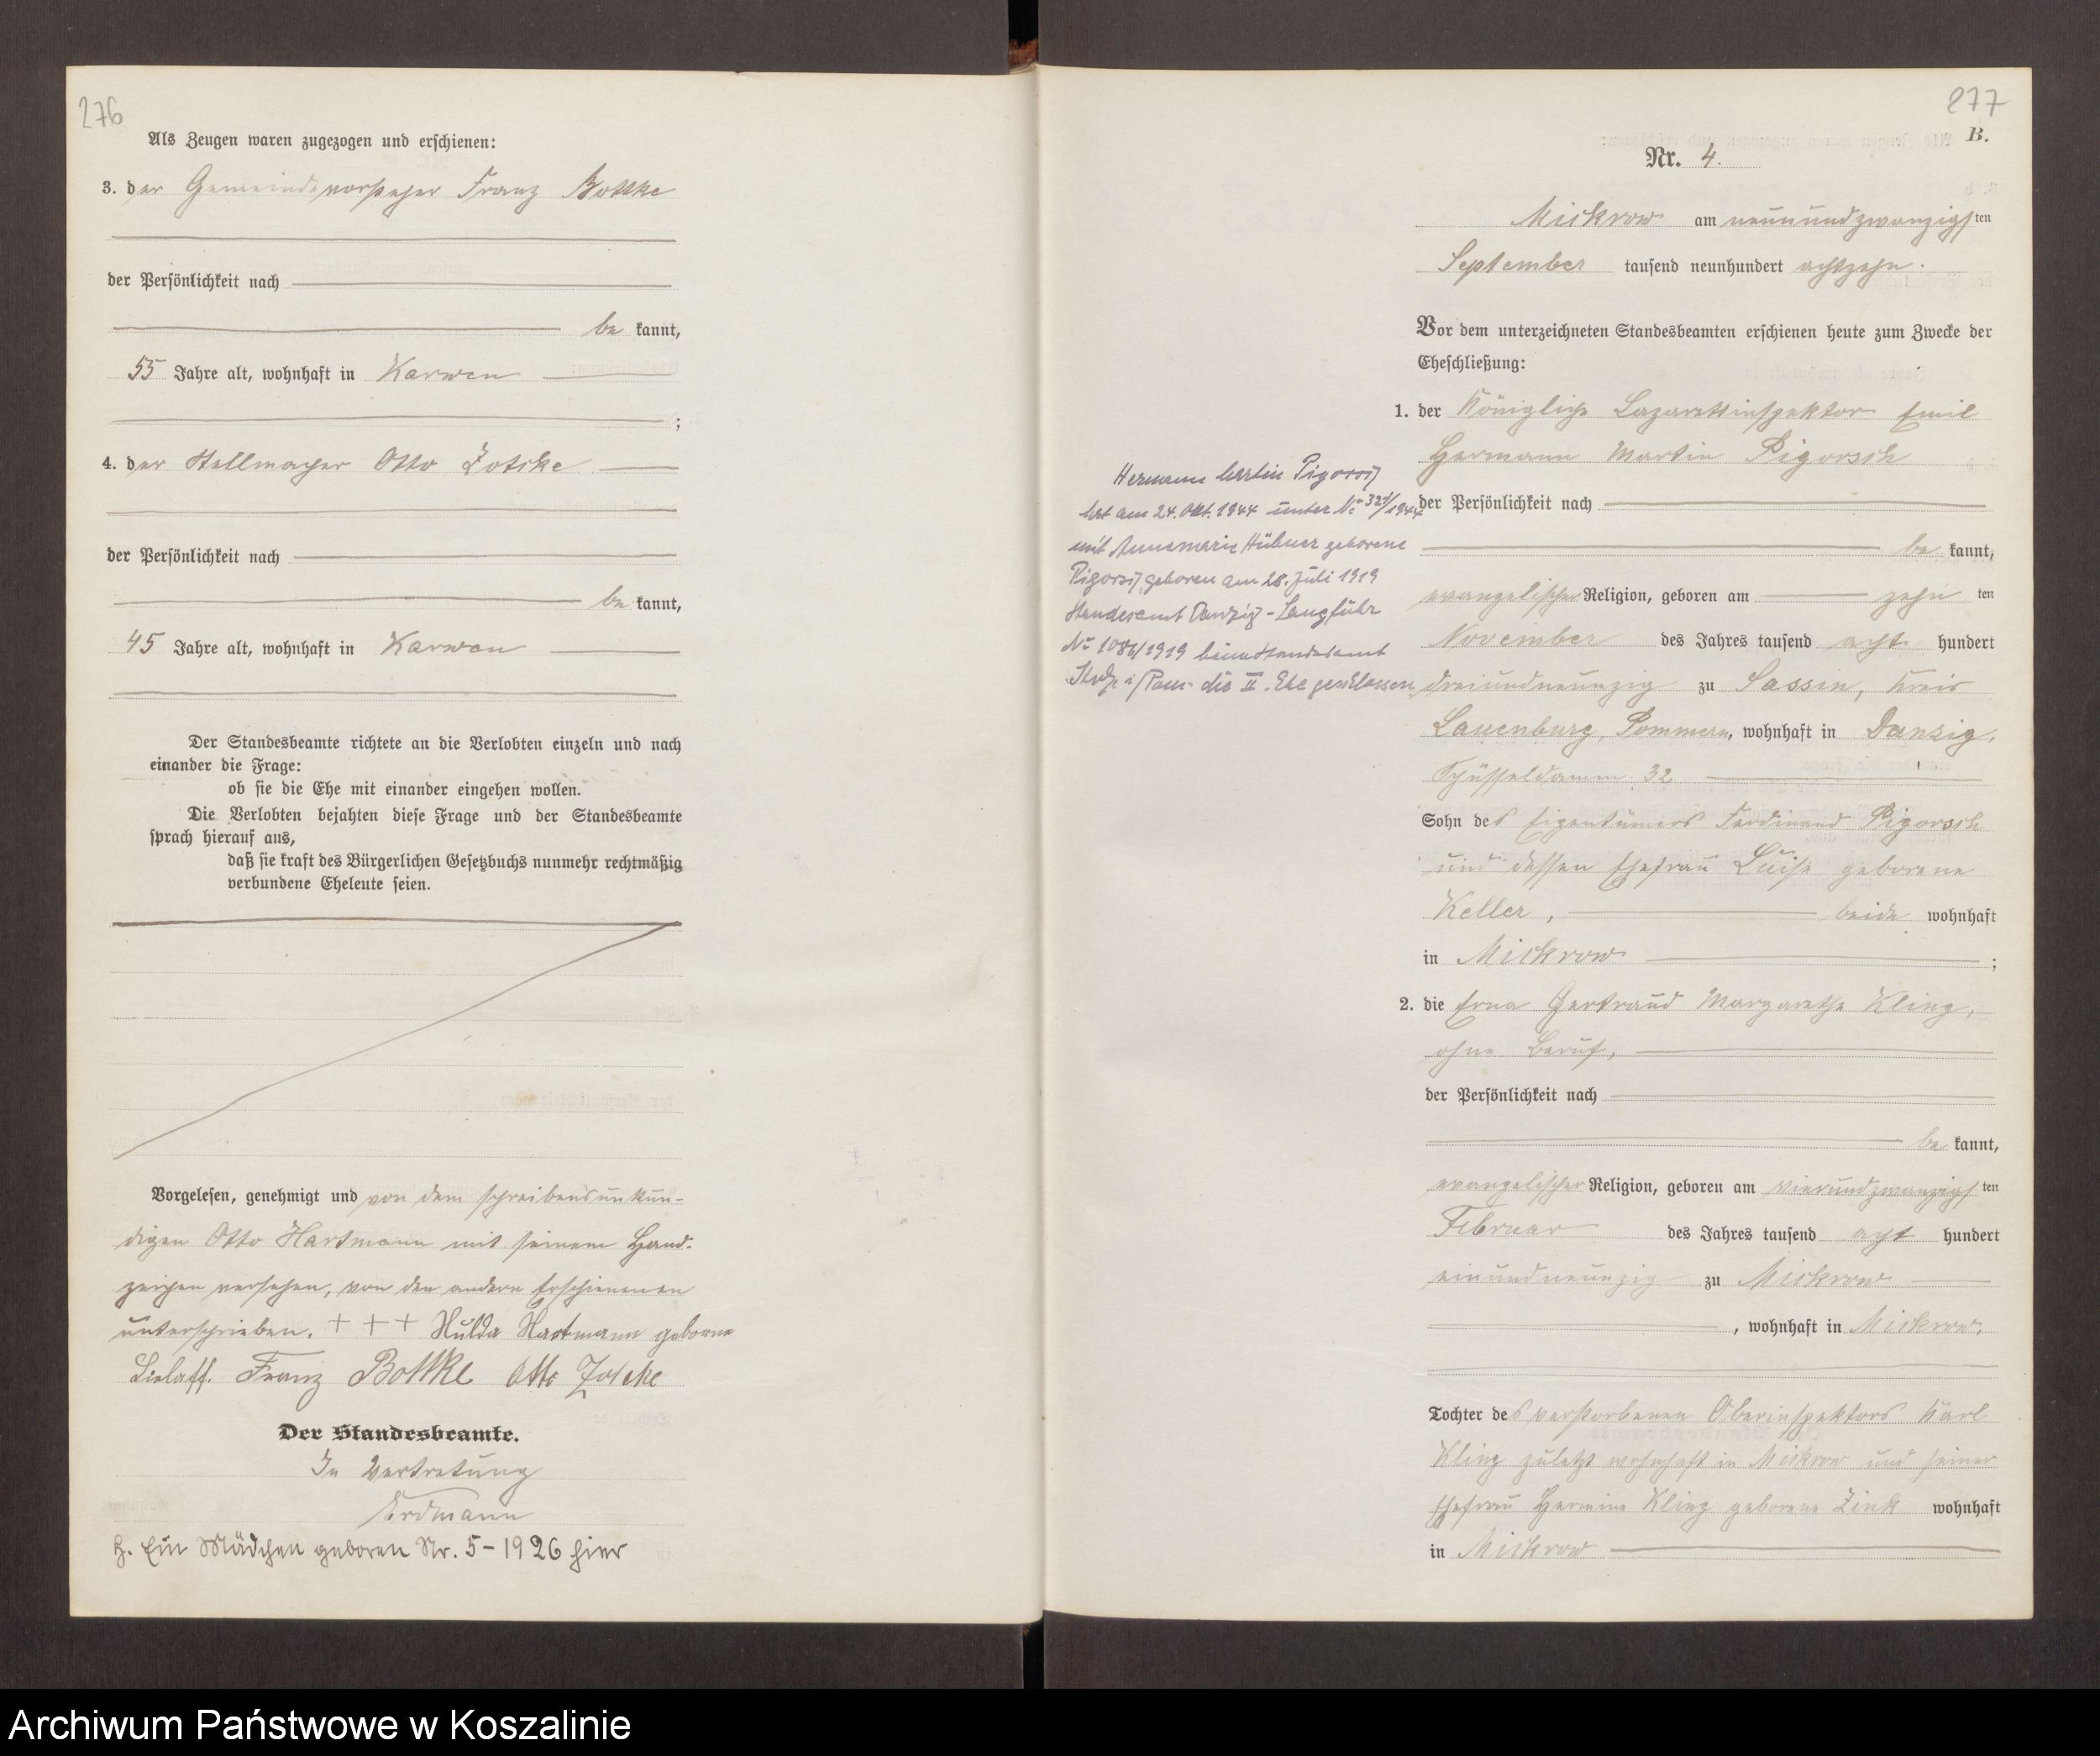 276
Als Zeugen waren zugezogen und erschienen:
3. der Gemeindevorsteher Franz Bottke
der Persönlichkeit nach
be kannt,
55 Jahre alt, wohnhaft in Karwen
;
4. der Stellmacher Otto Zotske
der Persönlichkeit nach
be kannt,
45 Jahre alt, wohnhaft in Karwen
Der Standesbeamte richtete an die Verlobten einzeln und nach
einander die Frage:
ob sie die Ehe mit einander eingehen wollen.
Die Verlobten bejahten diese Frage und der Standesbeamte
sprach hierauf aus,
daß sie kraft des Bürgerlichen Gesetzbuchs nunmehr rechtmäßig
verbundene Eheleute seien.
Vorgelesen, genehmigt und von dem schreibensunkun-
digen Otto Hartmann mit seinem Hand-
zeichen versehen, von den andern Erschienenen
unterschrieben. + + + Hulda Hartmann geborne
Lielaff. Franz Bottke Otto
Der Standesbeamte.
In Vertretung
Erdmann
H. Ein Mädchen geboren Nr. 5-1926 hier
277
B.
Nr. 4.
Mickrow am neunundzwanzigsten
September tausend neunhundert achtzehn.
Vor dem unterzeichneten Standesbeamten erschienen heute zum Zwecke der
Eheschließung:
1. der Königliche Lazarettinspektor Emil
Hermann Martin Pigorsch
der Persönlichkeit nach
be kannt,
evangelischer Religion, geboren am zehn ten
November des Jahres tausend acht hundert
dreiundneunzig zu Sassin, Kreis
Lauenburg, Pommern, wohnhaft in Danzig,
Schüsseldamm 32
Sohn des Eigentümers Ferdinand Pigorsch
und dessen Ehefrau Luise geborene
Keller, beide wohnhaft
in Mickrow ;
2. die Erna Gertraud Margarethe Kling,
ohne Beruf,
der Persönlichkeit nach
be kannt,
evangelischer Religion, geboren am vierundzwanzigsten
Februar des Jahres tausend acht hundert
einundneunzig zu Mickrow
, wohnhaft in Mickrow,
Tochter des verstorbenen Oberinspektors Karl
Kling zuletzt wohnhaft in Mickrow und seiner
Ehefrau Hermine Kling geborene Zink wohnhaft
in Mickrow
Hermann Martin Pigorsch
hat am 24. Okt. 1944 unter № 321/1944
mit Annemarie Hübner geborene
Pigorsch, geboren am 28. Juli 1919
Standesamt Danzig-Langfuhr
№ 1086/1919 beim Standesamt
Stolp i/Pom. die II. Ehe geschlossen
Archiwum Państwowe w Koszalinie